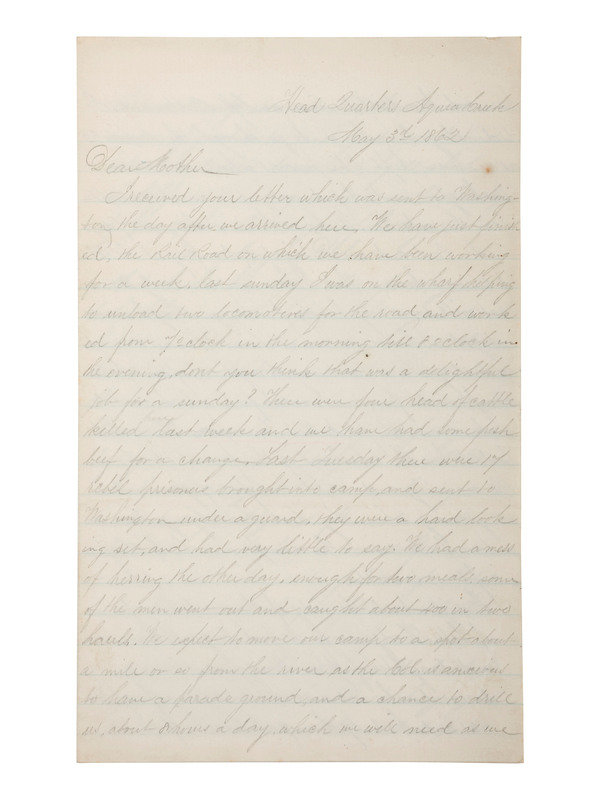 Head Quarters Aquia Creek
May 3rd 1862
Dear Mother
I received your letter which was sent to Washing-
ton, the day after we arrived here. We have just finish
ed, the Rail Road on which we have been working
for a week, last sunday I was on the wharf helping
to unload two locomotives for the road, and work
ed from 7 oclock in the morning till 8 oclock in
the evening, dont you think that was a delightful
job for a sunday? There were four head of cattle
killed last week and we have had some fresh
beef for a change. Last Tuesday there were 17
rebel prisoners brought into camp, and sent to
Washington under a guard, they were a hard look
ing set, and had very little to say. We had a mess
of herring the other day, enough for two meals, some
of the men went out and caught about 400 in two
hauls. We expect to move our camp to a spot about
a mile or so from the river, as the Col. is anxious
to have a parade ground, and a chance to drill
us, about 8 hours a day, which we will need as we